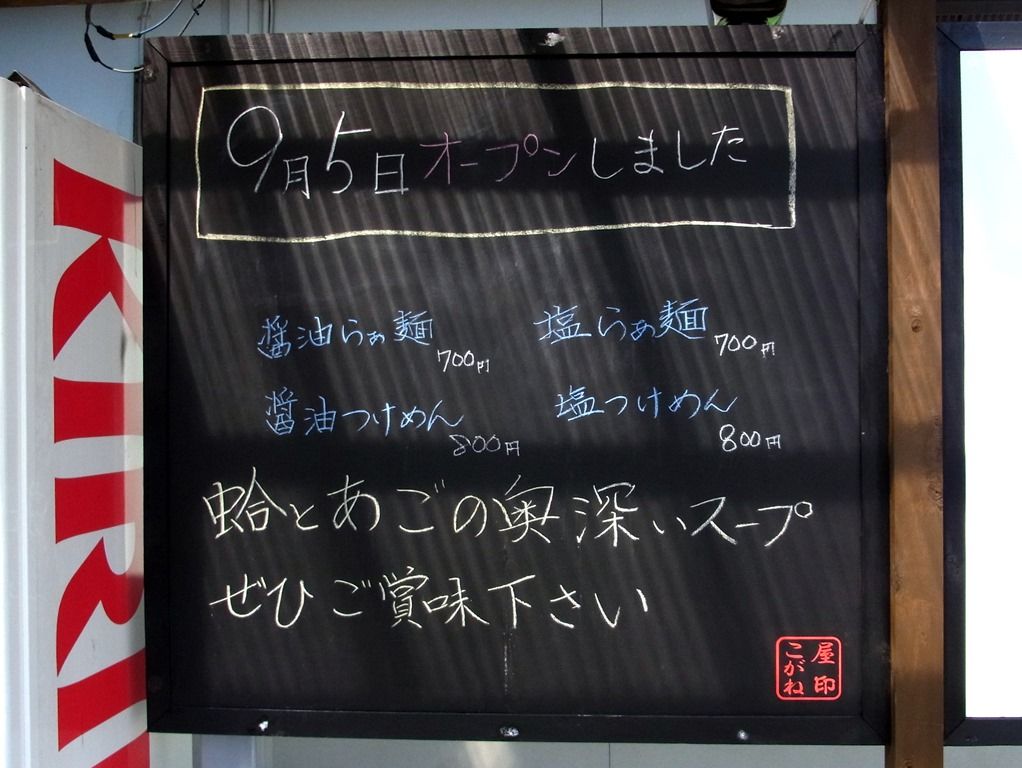 9月5日オープンしました
醤油らぁ麺 700円
塩らぁ麺 700円
醤油つけめん 800円
塩つけめん 800円
蛤とあごの奥深いスープ
ぜひご賞味下さい
屋印
こがね
KIRI